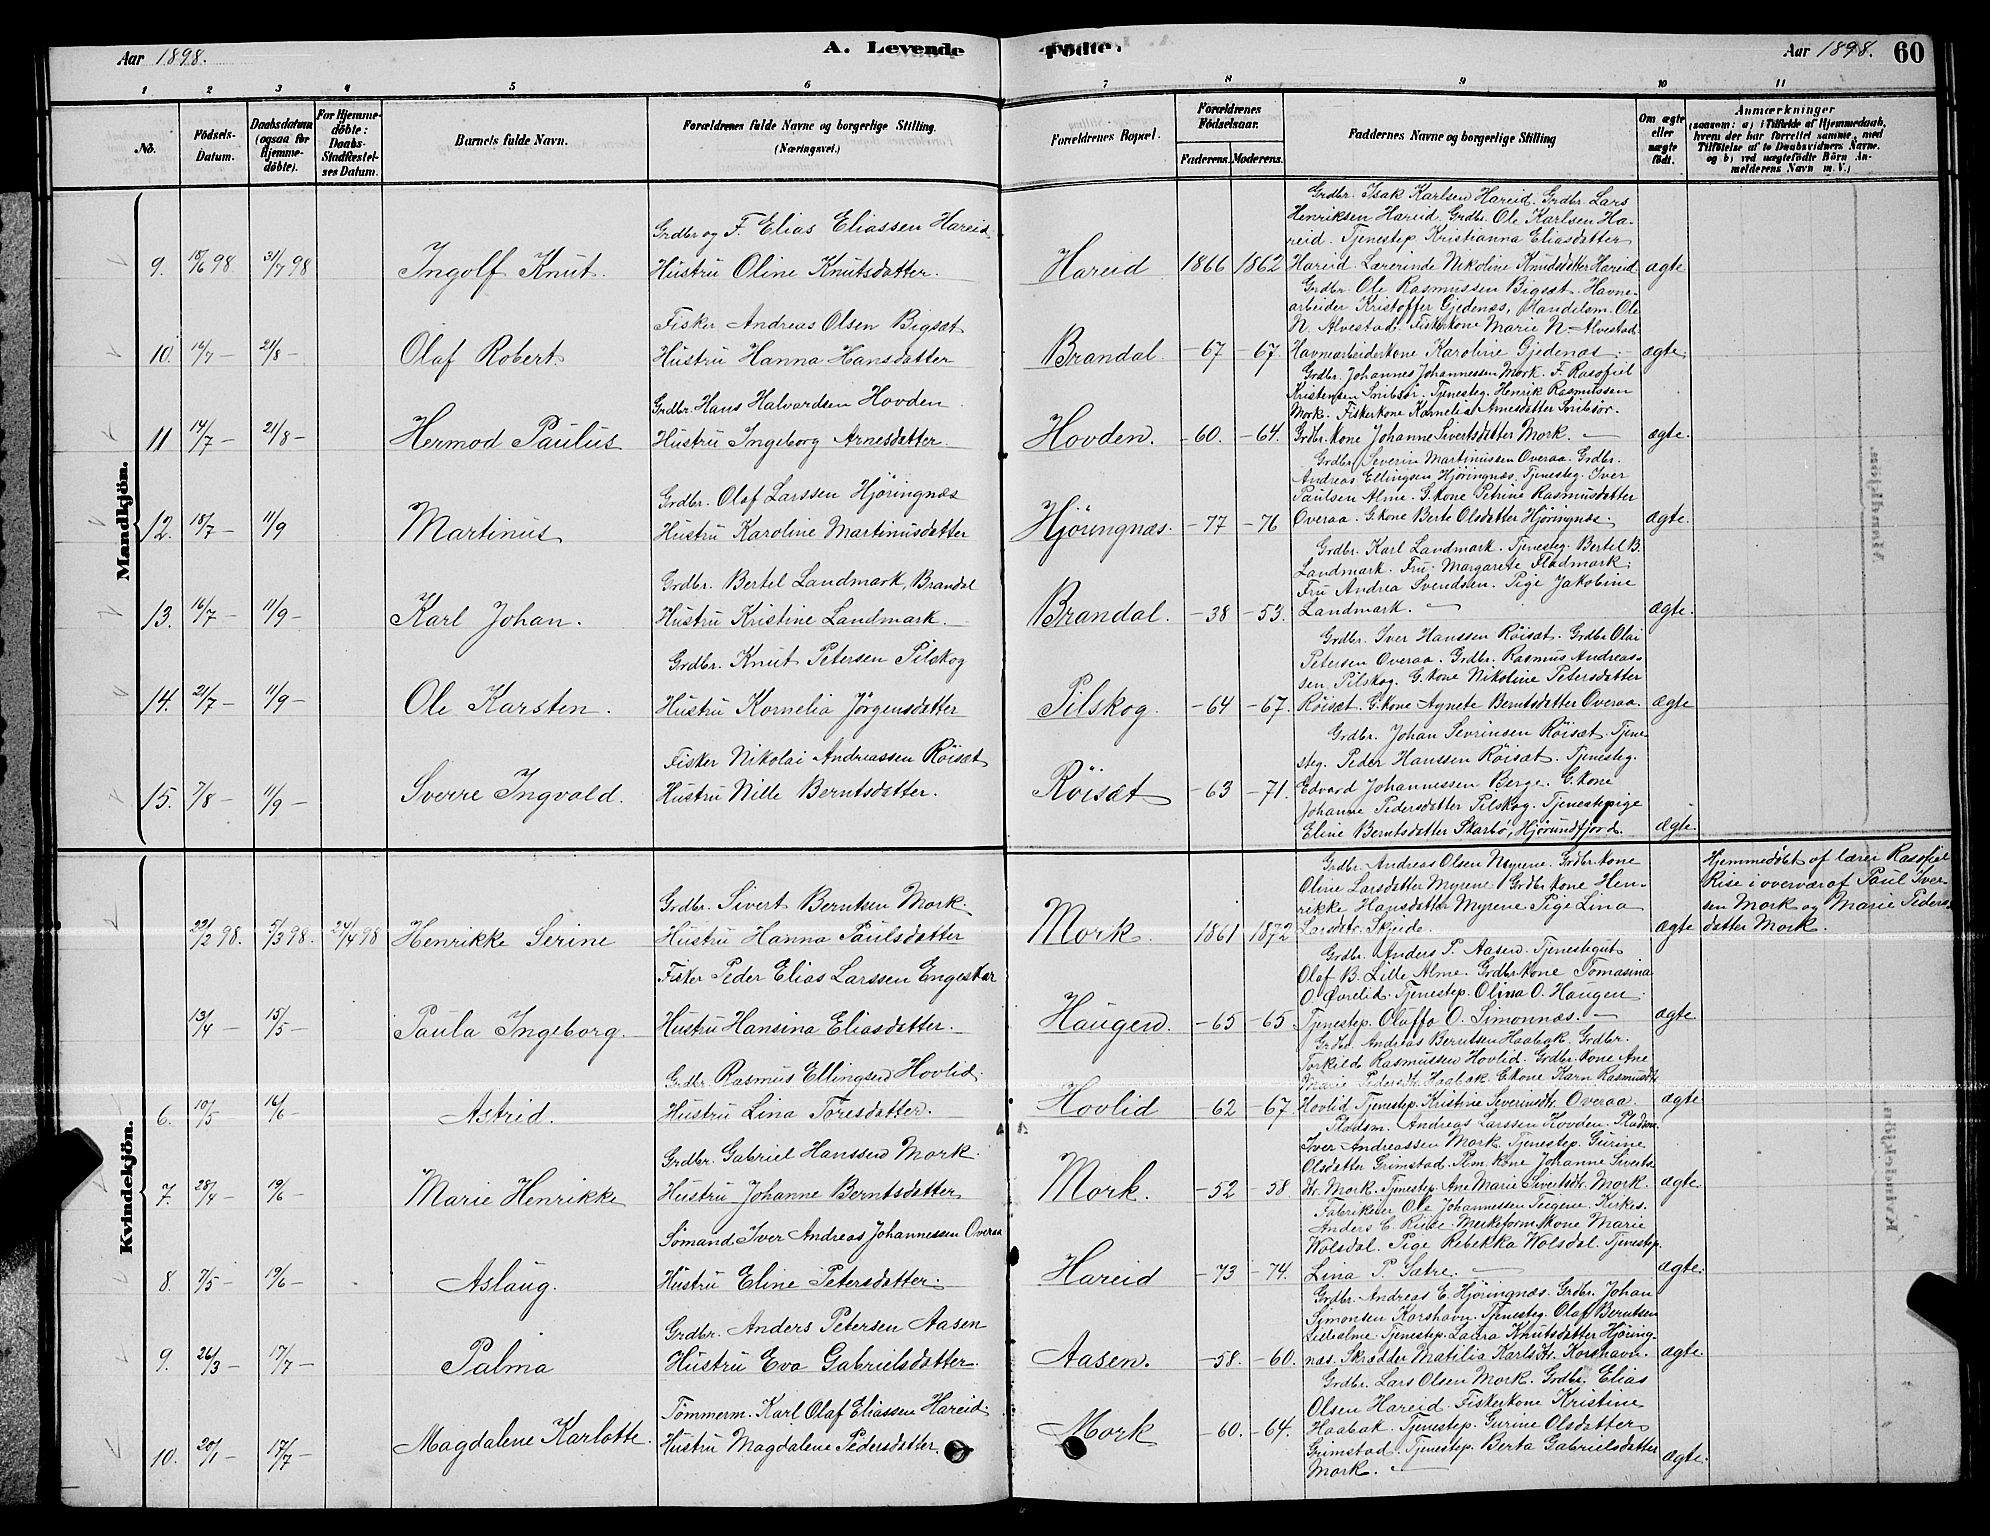 Aar 1898.
A. Levende
Födte.
Aar 1898.
60
1 2 3 4 5 6 7 8 9 10 11
No.
Födsels-
Datum.
Daabsdatum
(ogsaa for
Hjemme-
döbte).
For Hjemme-
döbte:
Daabs-
Stadfæstel-
ses Datum.
Barnets fulde Navn.
Forældrenes fulde Navne og borgerlige Stilling.
(Næringsvei.)
Forældrenes Bopæl.
Forældrenes
Födselsaar.
Faderens. Moderens.
Faddernes Navne og borgerlige Stilling
Om ægte
eller
uægte
födt.
Anmærkninger
(saasom: a) i Tilfælde af Hjemmedaab,
hvem der har forrettet samme, med
Tilföielse af to Daabsvidners Navne.
og b) ved uægtefödte Börn An-
melderens Navn m. V.)
Mandkjön.
9. 18/6 98 31/7 98
Ingolf Knut.
Grdbr og F. Elias Eliassen Hareid
Hustru Oline Knutsdatter.
Hareid 1866 1862
Grdbr. Isak Karlsen Hareid. Grdbr. Lars
Henriksen Hareid. Grdbr. Ole Karlsen Ha-
reid. Tjenestep. Kristianna Eliasdatter
Hareid. Lærerinde Nikoline Knudsdatter Hareid
ægte
10. 16/7 — 21/8 —
Olaf Robert.
Fisker Andreas Olsen Bigsæt
Hustru Hanna Hansdatter
Brandal. -67 -67.
Grdbr. Ole Rasmussen Bigsæt. Havne-
arbeider Kristoffer Gjedenæs, Handelsm. Ole
N. Alvestad, Fiskerkone Marie N. Alvestad
Havnearbeiderkone Karoline Gjedenæs. —
ægte.
11 14/7 — 21/8 —
Hermod Paulus
Grdbr. Hans Halvardsen Hovden
Hustru Ingeborg Arnesdatter
Hovden. -60. -64.
Grdbr. Johannes Johannessen Mork. F. Rasofiel
Kristensen Snibsör. Tjenesteg. Henrik Rasmussen
Mork. Fiskerkone Kornelia Arnesdatter Snibsör.
Grdbr. kone Johanne Sivertsdatter Mork. —
ægte.
12. 18/7 — 11/9
Martinus
Grdbr. Olaf Larssen Hjöringnæs
Hustru Karoline Martinusdatter
Hjöringnæs. -77 -76
Grdbr. Severin Martinussen Overaa. Grdbr.
Andreas Ellingsen Hjöringnæs. Tjenesteg. Iver
Paulsen Alme. G. kone Petrine Rasmusdatter
Overaa. G. kone Berte Olsdatter Hjöringnæs.
ægte.
13. 16/7 — 11/9 —
Karl Johan.
Grdbr. Bertel Landmark, Brandal
Hustru Kristine Landmark.
Brandal. -38 -53.
Grdbr. Karl Landmark. Tjenesteg. Bertel B.
Landmark. Fru Margarete Fladmark.
Fru Andrea Svendsen. Pige Jakobine
Landmark. —
ægte.
14. 21/7 — 11/9 —
Ole Karsten.
Grdbr. Knut Petersen Pilskog
Hustru Kornelia Jörgensdatter
Pilskog. -64 -67.
Grdbr. Iver Hanssen Röisæt. Grdbr. Olai
Petersen Overaa. Grdbr. Rasmus Andreas-
sen Pilskog. G. kone Nikoline Petersdatter
Röisæt. G. kone Agnete Berntsdatter Overaa.
ægte
15. 7/8 — 11/9 —
Sverre Ingvald.
Fisker Nikolai Andreassen Röisæt
Hustru Nille Berntsdatter.
Röisæt -63 -71.
Grdbr. Johan Sevrinsen Röisæt. Tjene-
steg. Peder Hanssen Röisæt. Tjenesteg.
Edvard Johannessen Berge. G. kone
Johanne Pedersdatter Pilskog. Tjenestepige
Eline Berntsdatter Skarbö, Hjörundfjord.
Ægte
Kvindekjön.
22/2 98. 5/3 98. 24/4 98
Henrikke Serine
Grdbr. Sivert Berntsen Mork.
Hustru Hanna Paulsdatter
Mork. 1861 1872
Grdbr. Andreas Olsen Myrene. Grdbr. kone
Oline Larsdatter Myrene. Grdbr kone Hen-
rikke Hansdatter Myrene Pige Lina
Larsdtr. Skjeide.
ægte
Hjemmedöbt af lærer Rasofiel
Rise i overvær af Paul Iver-
sen Mork og Marie Peders-
datter Mork.
13/4 — 15/5 —
Paula Ingeborg.
Fisker Peder Elias Larssen Engeskar
Hustru Hansina Eliasdatter.
Haugen. -65 -65
Grdbr. Anders P. Aasen. Tjenestegut
Olaf B. Lille Alme. Grdbr kone Tomasina
O. Øvrelid. Tjenestep. Olina O. Haugen
Tjenestep. Oluffa O. Simonnæs. —
ægte.
6. 10/5 16/6
Astrid.
Grdbr Rasmus Ellingsen Hovlid.
Hustru Lina Toresdatter.
Hovlid -62 -67
Grdbr. Andreas Berntsen Haabak. Grdbr.
Torkild Rasmussen Hovlid. Grdbr. kone Ane
Marie Pedersdtr. Haabak. G. kone Karn Rasmusdtr.
Hovlid Tjenestep. Kristine Severinsdtr. Overaa.
ægte
7. 28/4 19/6
Marie Henrikke
Grdbr. Gabriel Hanssen Mork.
Hustru Johanne Berntsdatter
Mork. -52 -58
Pladsm. Andreas Larssen Hovden. Pladsm.
Iver Andreassen Mork. Tjenestep. Gurine
Olsdatter Grimstad. Plm. kone Johanne Siverts
dtr. Mork. Tjenestep. Ane Marie Sivertsdtr. Mork
ægte.
8. 7/5 — 19/6 —
Aslaug.
Sömand Iver Andreas Johannessen Overaa
Hustru Eline Petersdatter.
Hareid -73 -74.
Fabrikeier Ole Johannessen Teigene. Kirkes.
Anders C. Riise. Merkeform. kone Marie
Wolsdal. Pige Rebekka Wolsdal. Tjenestep.
Lina P. Sætre. —
ægte.
9. 26/3 — 17/7 —
Palma
Grdbr. Anders Petersen Aasen
Hustru Eva Gabrielsdatter.
Aasen. -58. -60.
Grdbr. Andreas E. Hjöringnæs. Grdbr. Johan
Simonsen Korshavn. Tjenesteg. Olaf Berntsen
Lillealme. Tjenestep. Laura Knutsdatter Hjöring-
næs. Skrædder Matilia Karlsdtr. Korshavn.
ægte
10. 20/1 — 17/7 —
Magdalene Karlotte.
Tömmerm. Karl Olaf Eliassen Hareid.
Hustru Magdalene Pedersdatter
Mork -60. -64.
Grdbr. Lars Olsen Mork. Grdbr. Elias
Olsen Hareid. Fiskerkone Kristine
Haabak. Tjenestep. Gurine Olsdatter
Grimstad. Tjenestep. Berta Gabrielsdatter
Mork. —
ægte.